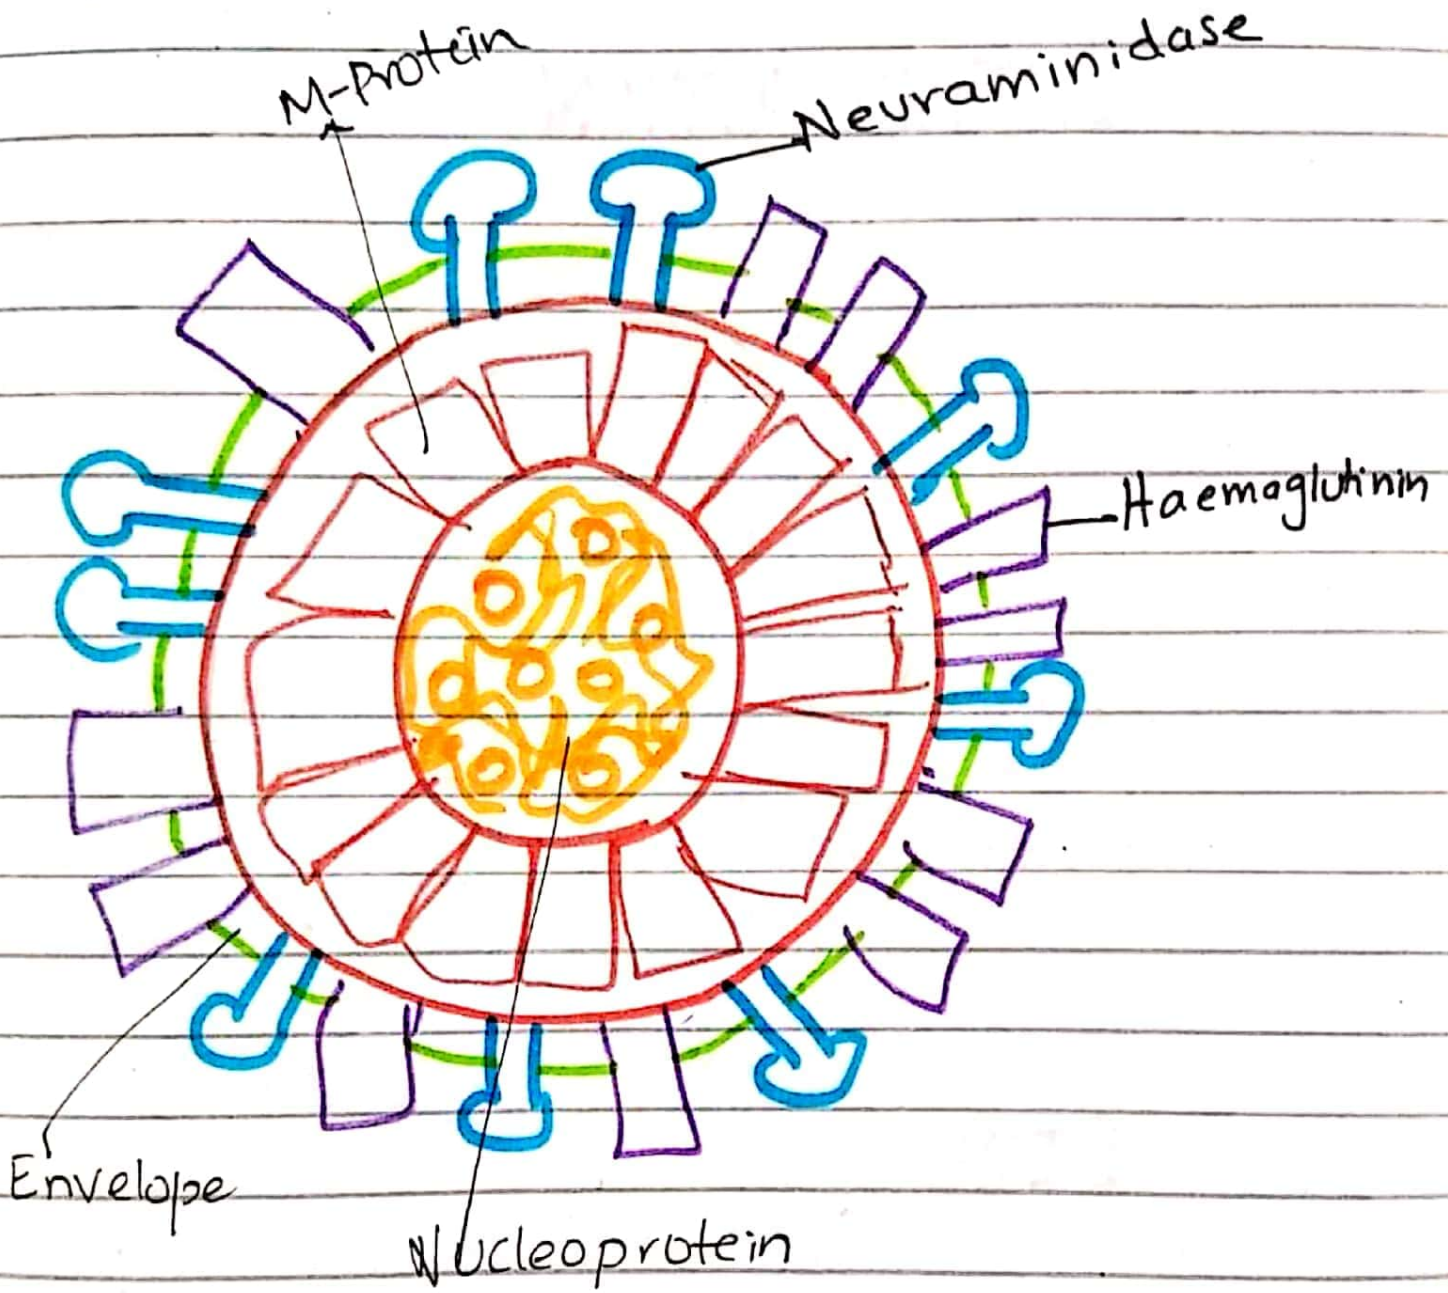 M-Protein
Neuraminidase
Haemaglutinin
Envelope
Nucleoprotein